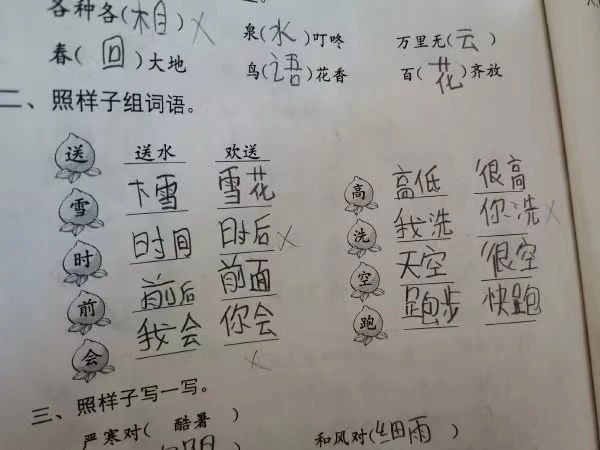 各种各(相) 泉(水)叮咚 万里无(云)
春(回)大地 鸟(语)花香 百(花)齐放
二、照样子组词语。
送 送水 欢送
雪 下雪 雪花 高 高低 很高
时 时间 时后 洗 我洗 你洗
前 前后 前面 空 天空 很空
会 我会 你会 跑 跑步 快跑
三、照样子写一写。
严寒对( 酷暑 ) 和风对(细雨)